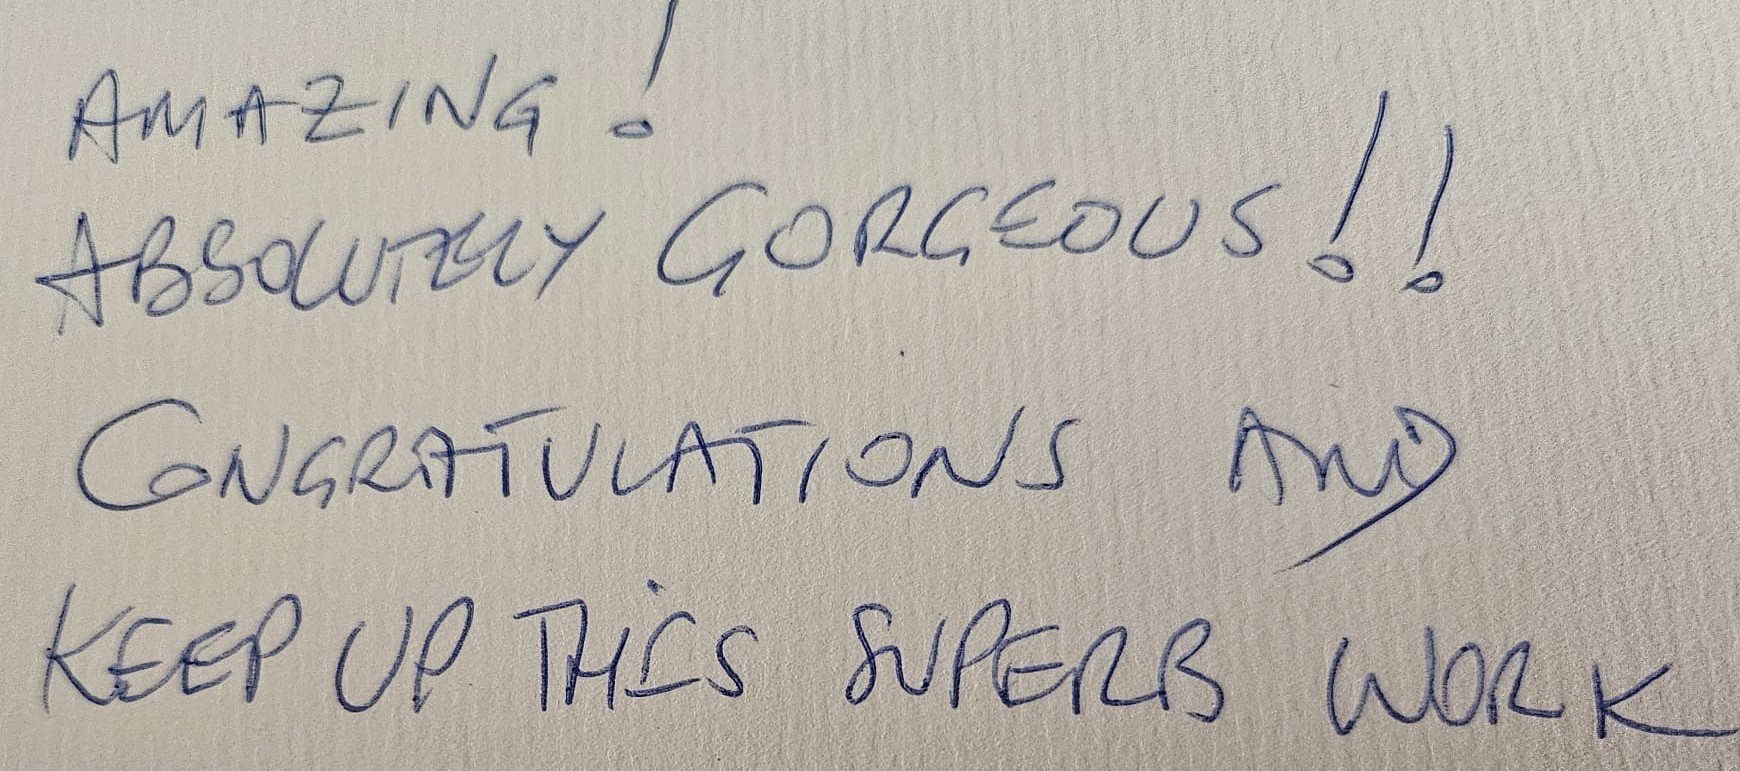 AMAZING !
ABSOLUTELY GORGEOUS !!
CONGRATULATIONS AND
KEEP UP THIS SUPERB WORK